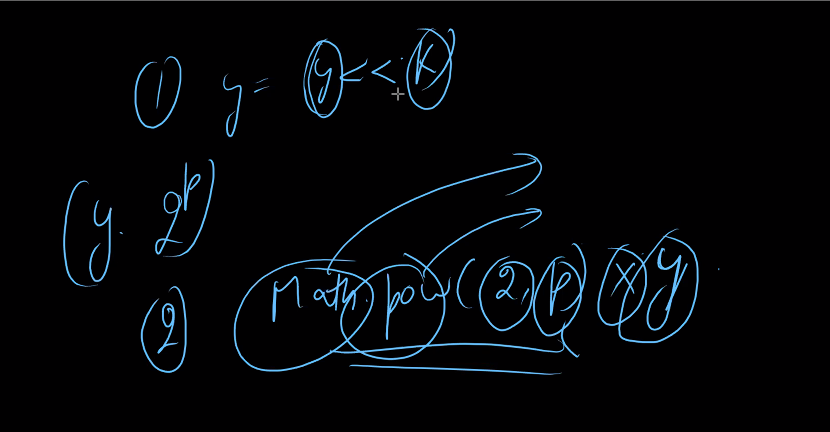 1 y = y << k
(y. 2^p)
2 Math.pow(2, p) x y.